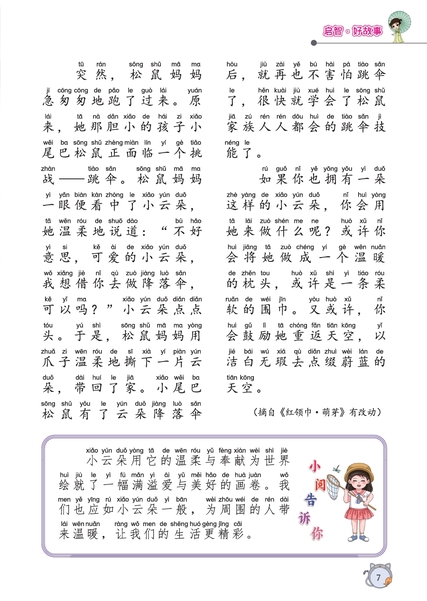 启智·好故事
tū rán sōng shǔ mā ma
突然，松鼠妈妈
jí cōng cōng de pǎo le guò lái yuán
急匆匆地跑了过来。原
lái tā nà dǎn xiǎo de hái zi xiǎo
来，她那胆小的孩子小
wěi ba sōng shǔ zhèng miàn lín yí gè tiǎo
尾巴松鼠正面临一个挑
zhàn tiào sǎn sōng shǔ mā ma
战——跳伞。松鼠妈妈
yì yǎn biàn kàn zhòng le xiǎo yún duǒ
一眼便看中了小云朵，
tā wēn róu de shuō dào bù hǎo
她温柔地说道：“不好
yì si kě ài de xiǎo yún duǒ
意思，可爱的小云朵，
wǒ xiǎng jiè nǐ qù zuò jiàng luò sǎn
我想借你去做降落伞，
kě yǐ ma xiǎo yún duǒ diǎn diǎn
可以吗？”小云朵点点
tóu yú shì sōng shǔ mā ma yòng
头。于是，松鼠妈妈用
zhuǎ zi wēn róu de sī xià yí piàn yún
爪子温柔地撕下一片云
duǒ dài huí le jiā xiǎo wěi ba
朵，带回了家。小尾巴
sōng shǔ yǒu le yún duǒ jiàng luò sǎn
松鼠有了云朵降落伞
hòu jiù zài yě bú hài pà tiào sǎn
后，就再也不害怕跳伞
le hěn kuài jiù xué huì le sōng shǔ
了，很快就学会了松鼠
jiā zú rén rén dōu huì de tiào sǎn jì
家族人人都会的跳伞技
néng le
能了。
rú guǒ nǐ yě yōng yǒu yì duǒ
如果你也拥有一朵
zhè yàng de xiǎo yún duǒ nǐ huì yòng
这样的小云朵，你会用
tā lái zuò shén me ne huò xǔ nǐ
她来做什么呢？或许你
huì jiāng tā zuò chéng yí gè wēn nuǎn
会将她做成一个温暖
de zhěn tou huò xǔ shì yì tiáo róu
的枕头，或许是一条柔
ruǎn de wéi jīn yòu huò xǔ nǐ
软的围巾。又或许，你
huì gǔ lì tā chóng fǎn tiān kōng yǐ
会鼓励她重返天空，以
jié bái wú xiá qù diǎn zhuì wèi lán de
洁白无瑕去点缀蔚蓝的
tiān kōng
天空。
（摘自《红领巾·萌芽》有改动）
xiǎo yún duǒ yòng tā de wēn róu yǔ fèng xiàn wèi shì jiè
小云朵用它的温柔与奉献为世界
huì jiù le yì fú mǎn yì ài yǔ měi hǎo de huà juàn wǒ
绘就了一幅满溢爱与美好的画卷。我
men yě yīng rú xiǎo yún duǒ yì bān wèi zhōu wéi de rén dài
们也应如小云朵一般，为周围的人带
lái wēn nuǎn ràng wǒ men de shēng huó gèng jīng cǎi
来温暖，让我们的生活更精彩。
小阅告诉你
7